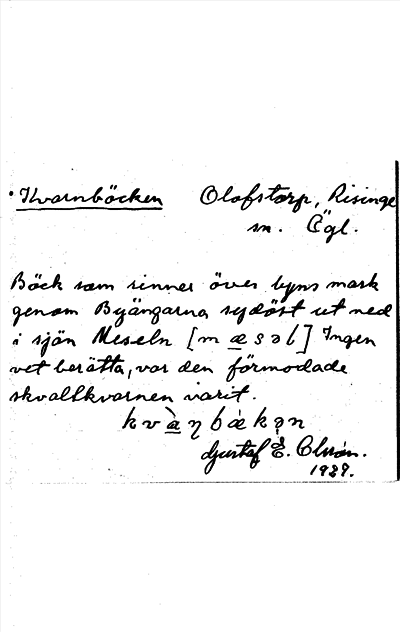 • Kvarnbäcken Olofstorp, Risinge
sn. Ögl.
Bäck som rinner över byns mark
genom Byängarna sydöst ut ned
i sjön Meseln [mæsəl] Ingen
vet berätta, var den förmodade
skvaltkvarnen varit.
Gustaf E.
1929.